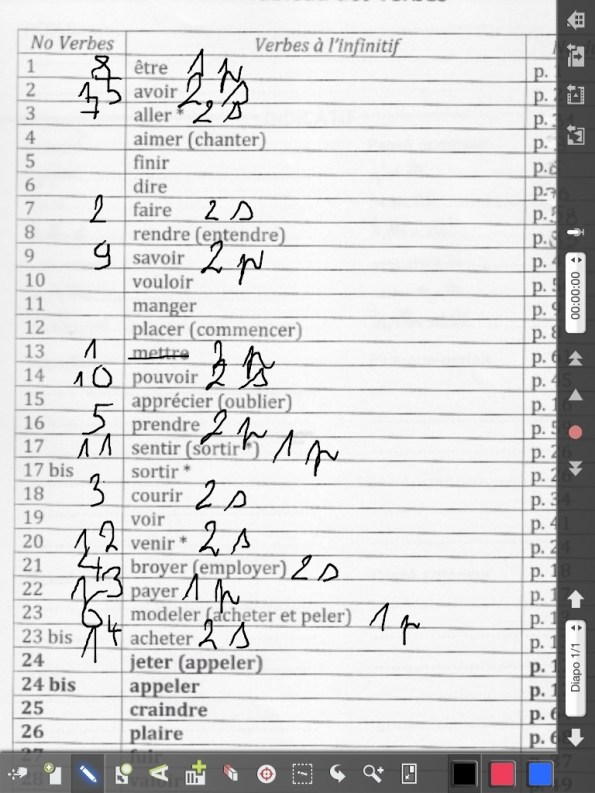 No Verbes Verbes à l'infinitif
1 8 être 1 p p.
2 15 avoir 2 s p.
3 7 aller * 2 s p.
4 aimer (chanter) p.
5 finir p.
6 dire p.
7 2 faire 2 s p.
8 rendre (entendre) p.
9 9 savoir 2 p p.
10 vouloir p.
11 manger p.
12 placer (commencer) p.
13 1 mettre p p.
14 10 pouvoir 2 s p.
15 apprécier (oublier) p.
16 5 prendre 2 p p.
17 11 sentir (sortir *) 1 p p.
17 bis sortir * p.
18 3 courir 2 s p. 34
19 voir p. 41
20 12 venir * 2 s p. 24
21 4 broyer (employer) 2 s p. 18
22 13 payer 1 p p. 1
23 6 modeler (acheter et peler) 1 p p. 1
23 bis 14 acheter 2 s p. 1
24 jeter (appeler) p. 1
24 bis appeler p. 1
25 craindre p. 6
26 plaire p.
27 fuir
28 valoir
00:00:00
Diapo 1/1